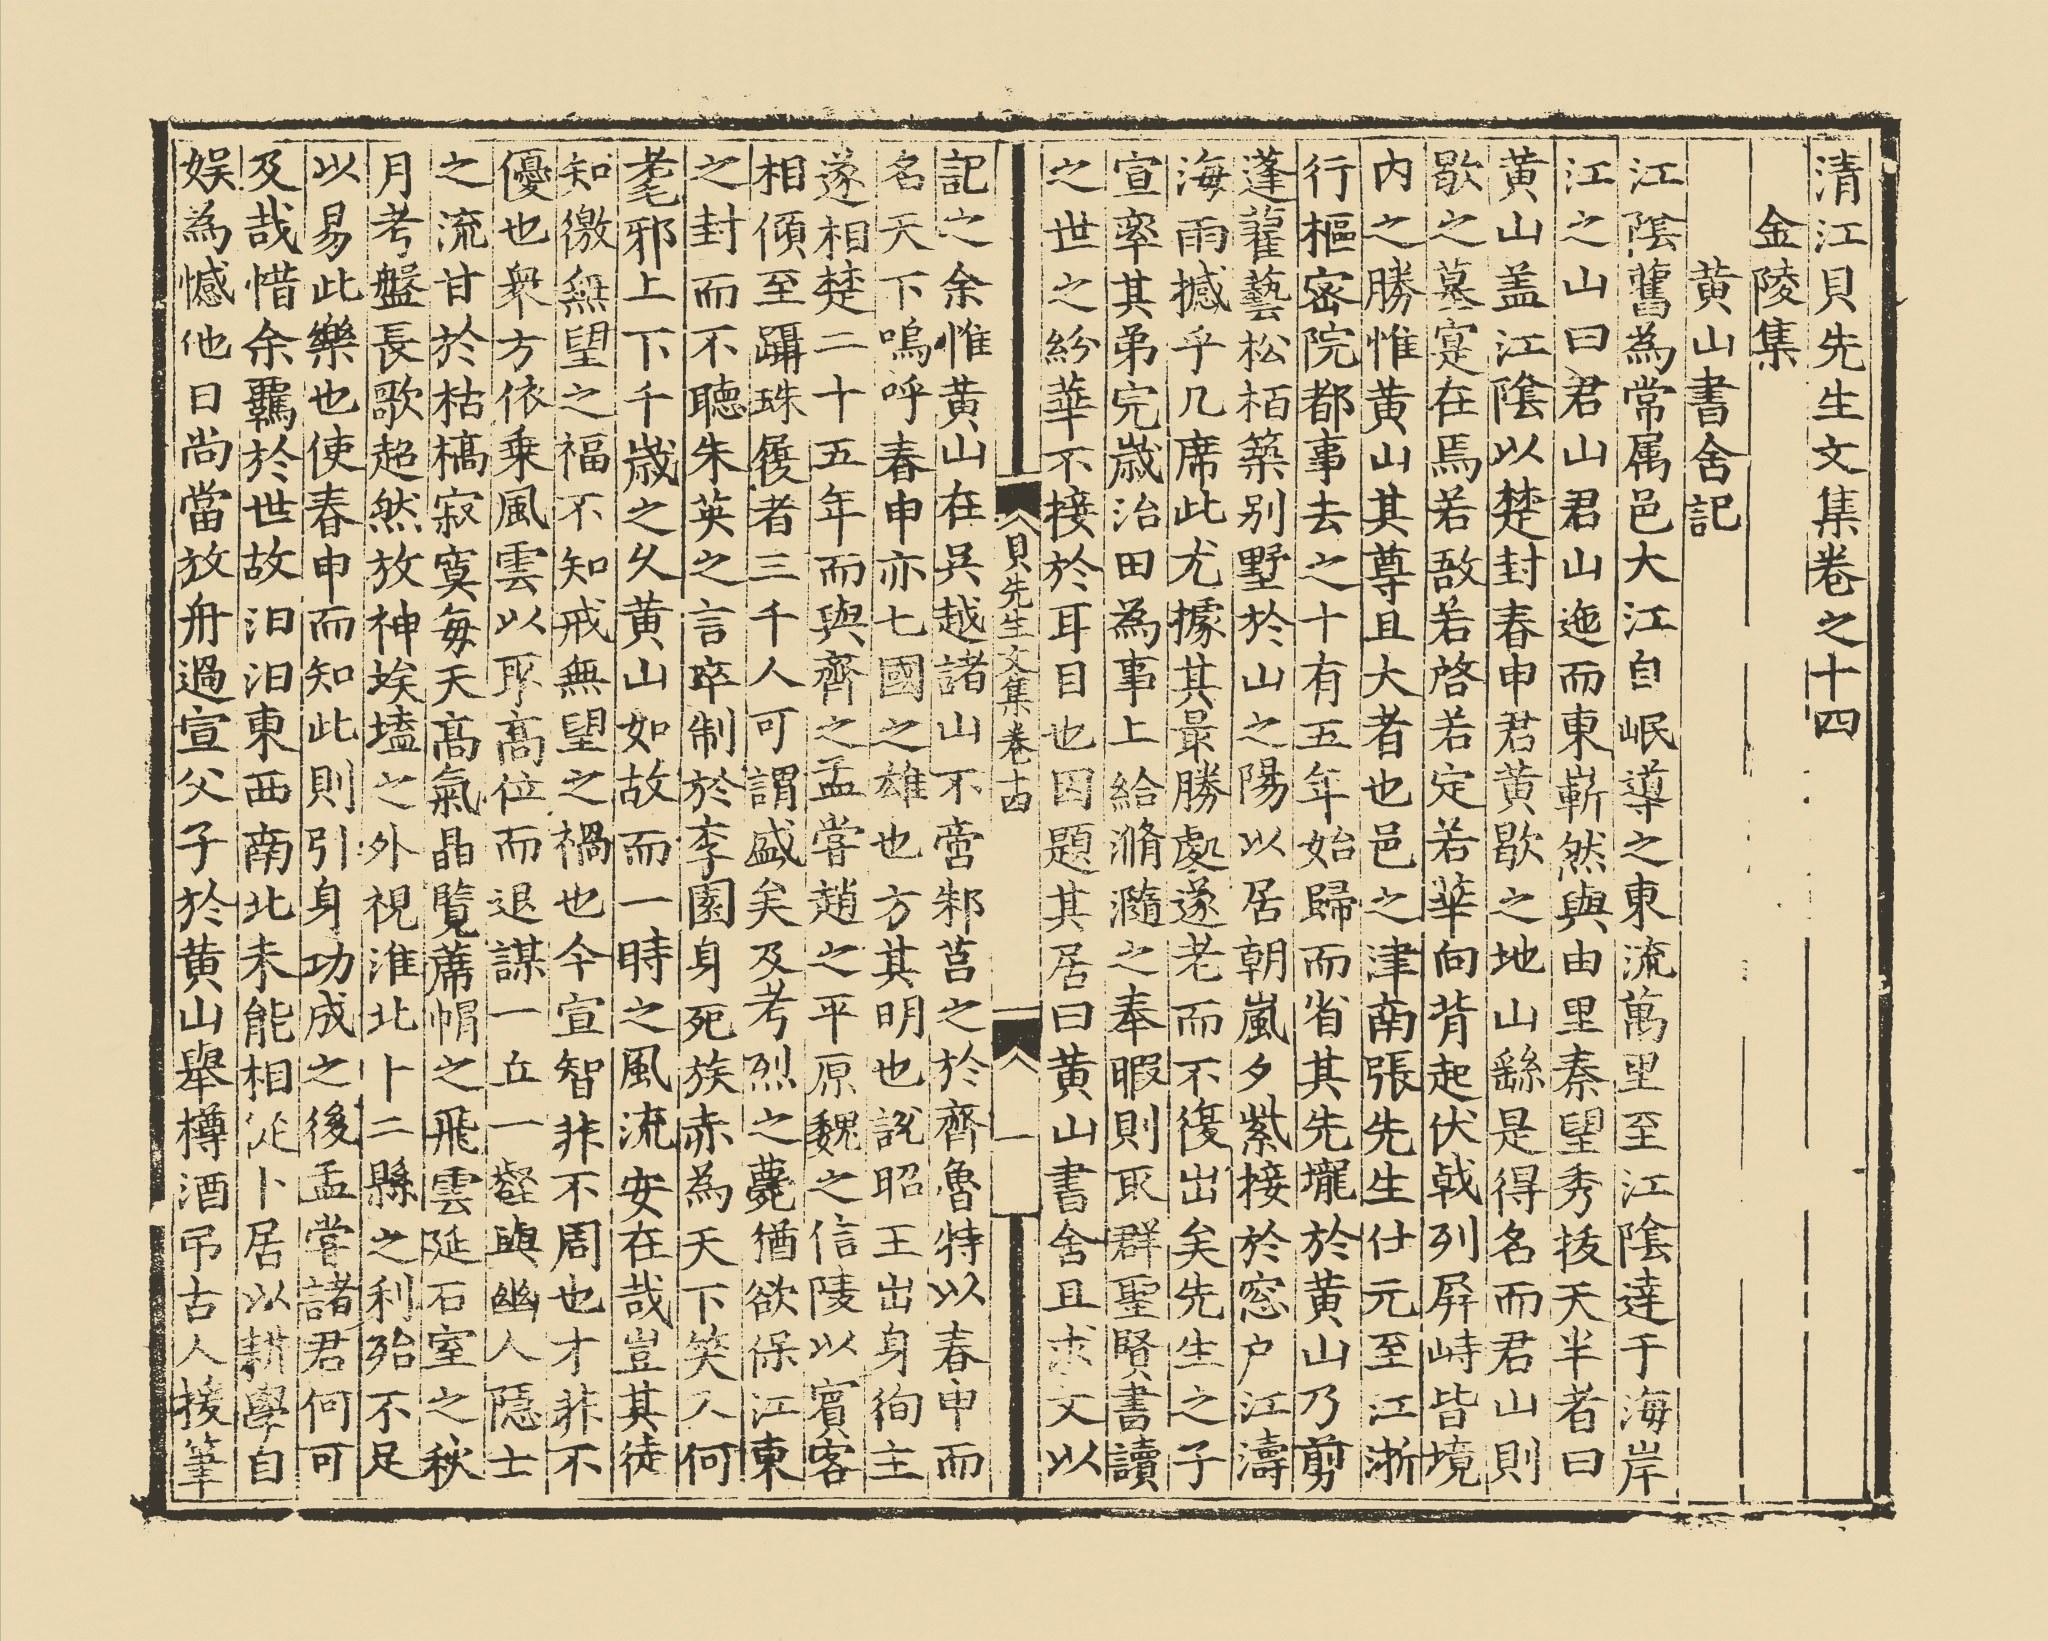 清江貝先生文集卷之十四
金陵集
黄山書舍記
江陰舊為常属邑大江自岷導之東流萬里至江陰達于海岸
江之山曰君山君山迤而東嶄然與由里秦望秀拔天半者曰
黄山盖江陰以楚封春申君黄歇之地山繇是得名而君山則
歇之墓寔在焉若敔若啓若定若華向背起伏戟列屏峙皆境
内之勝惟黄山其尊且大者也邑之津南張先生仕元至江浙
行樞密院都事去之十有五年始歸而省其先壠於黄山乃剪
蓬藋藝松栢築别墅於山之陽以居朝嵐夕紫接於窓户江濤
海雨撼乎几席此尤據其最勝處遂老而不復出矣先生之子
宣率其弟完歲治田為事上給滫瀡之奉暇則取群聖賢書讀
之世之紛華不接於耳目也因題其居曰黄山書舍且求文以
貝先生文集卷十四 一
記之余惟黄山在吴越諸山不啻邾莒之於齊魯特以春申而
名天下嗚呼春申亦七國之雄也方其明也説昭王出身徇主
遂相楚二十五年而與齊之孟嘗趙之平原魏之信陵以賓客
相傾至躡珠履者三千人可謂盛矣及考烈之薨猶欲保江東
之封而不聴朱英之言卒制於李園身死族赤為天下笑人何
耄邪上下千歲之久黄山如故而一時之風流安在哉豈其徒
知徼無望之福不知戒無望之禍也今宣智非不周也才非不
優也衆方依乗風雲以取髙位而退謀一丘一壑與幽人隠士
之流甘於枯槁寂寞毎天髙氣晶覽蓆帽之飛雲延石室之秋
月考盤長歌超然放神埃壒之外視淮北卜二縣之利殆不足
以易此樂也使春申而知此則引身功成之後孟嘗諸君何可
及哉惜余羈於世故汨汨東西南北未能相從卜居以耕學自
娱為憾他日尚當放舟過宣父子於黄山舉樽酒弔古人援筆